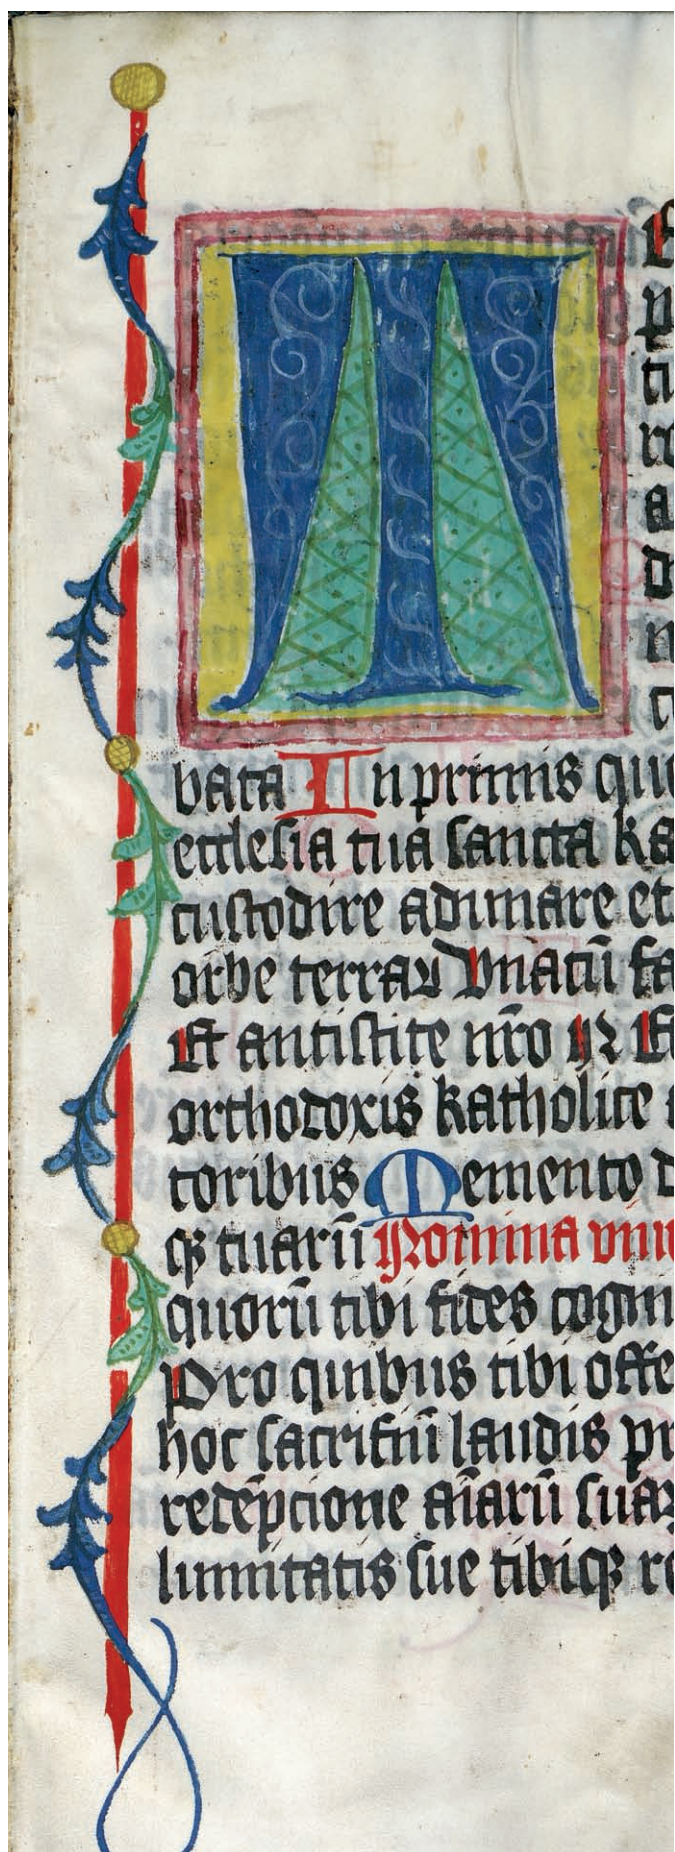 T E
p
ti
ro
a
di
n
ti
bata In primis que
ecclesia tua sancta ka
custodire adunare et
orbe terraꝝ Vnacū fa
Et antistite nr̄o N E
orthodoxis katholice
toribus Memento d
qꝫ tuarū Nomina viui
quorū tibi fides cogni
Pro quibus tibi offe
hoc sacrificiū laudis pr
redēpcione aīarū suaꝝ
lumitatis sue tibiqꝫ re